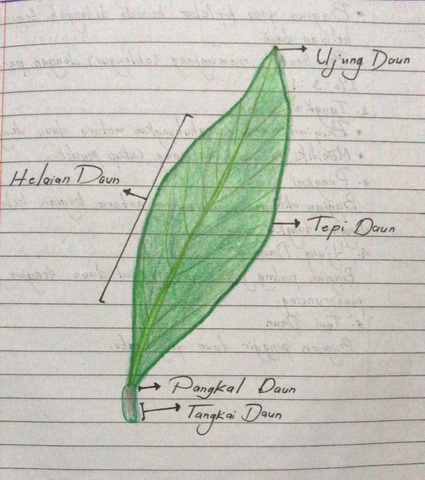 Ujung Daun
Helaian Daun
Tepi Daun
Pangkal Daun
Tangkai Daun